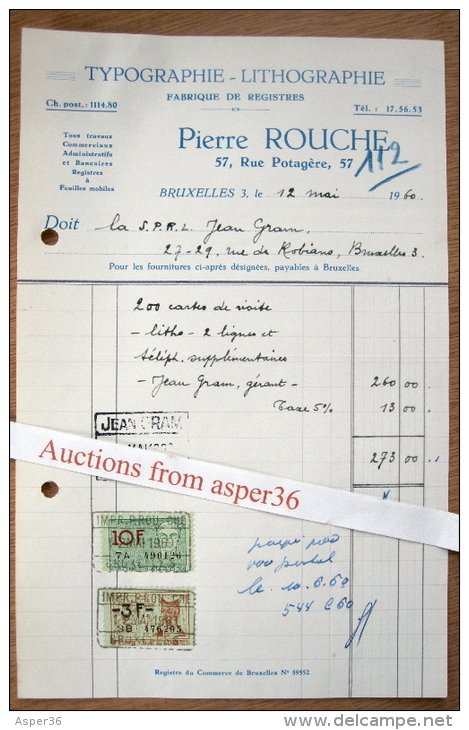 TYPOGRAPHIE - LITHOGRAPHIE
FABRIQUE DE REGISTRES
Ch. post.: 1114.80
Tél.: 17.56.53
Tous travaux
Commerciaux
Administratifs
et Bancaires
Registres
à
Feuilles mobiles
Pierre ROUCHE
57, Rue Potagère, 57
112
BRUXELLES 3, le 12 mai 1960.
Doit la S.P.R.L. Jean Gram,
27-29, rue de Robiano, Bruxelles 3.
Pour les fournitures ci-après désignées, payables à Bruxelles
200 cartes de visite
- litho - 2 lignes et
téléph. supplémentaires
- Jean Gram, gérant - 260 00
Taxe 5% 13 00
JEAN GRAM
273 00
Auctions from asper36
IMPR.P.ROU CHE
10F
7A 490126
payé par
voo postal
le 10.6.60
544 C60
IMPR.P.ROU CHE
-3F-
3B 476295
BRUXEL
Registre du Commerce de Bruxelles Nº 59552
Asper36
www.delcampe.net